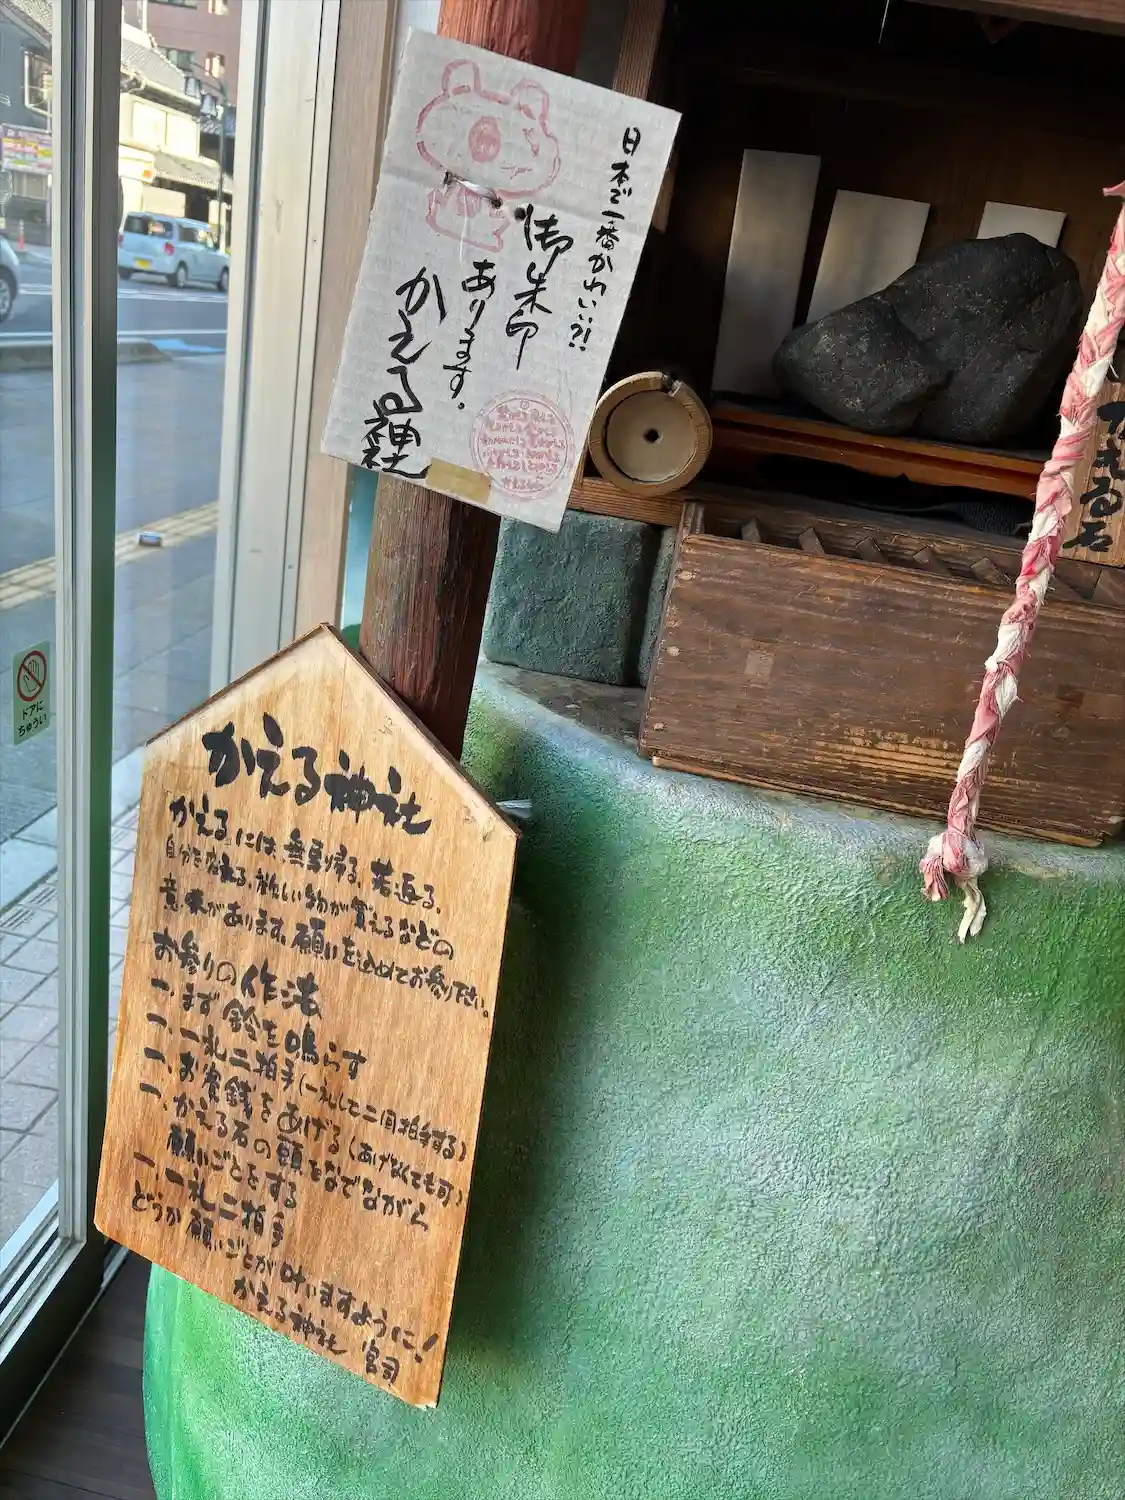 日本で一番かわいい?!
御朱印
あります。
かえる神社
かえる石
ドアに
ちゅうい
かえる神社
「かえる」には、無事帰る、若返る、
自分を変える、欲しい物が買えるなどの
意味があります。願いを込めてお参り下さい。
お参りの作法
一、まず鈴を鳴らす
一、一礼二拍手(一礼して二回拍手する)
一、お賽銭をあげる(あげなくても可)
一、かえる石の頭をなでながら
願いごとをする
一、一礼二拍手
どうか願いごとが叶いますように!
かえる神社 宮司